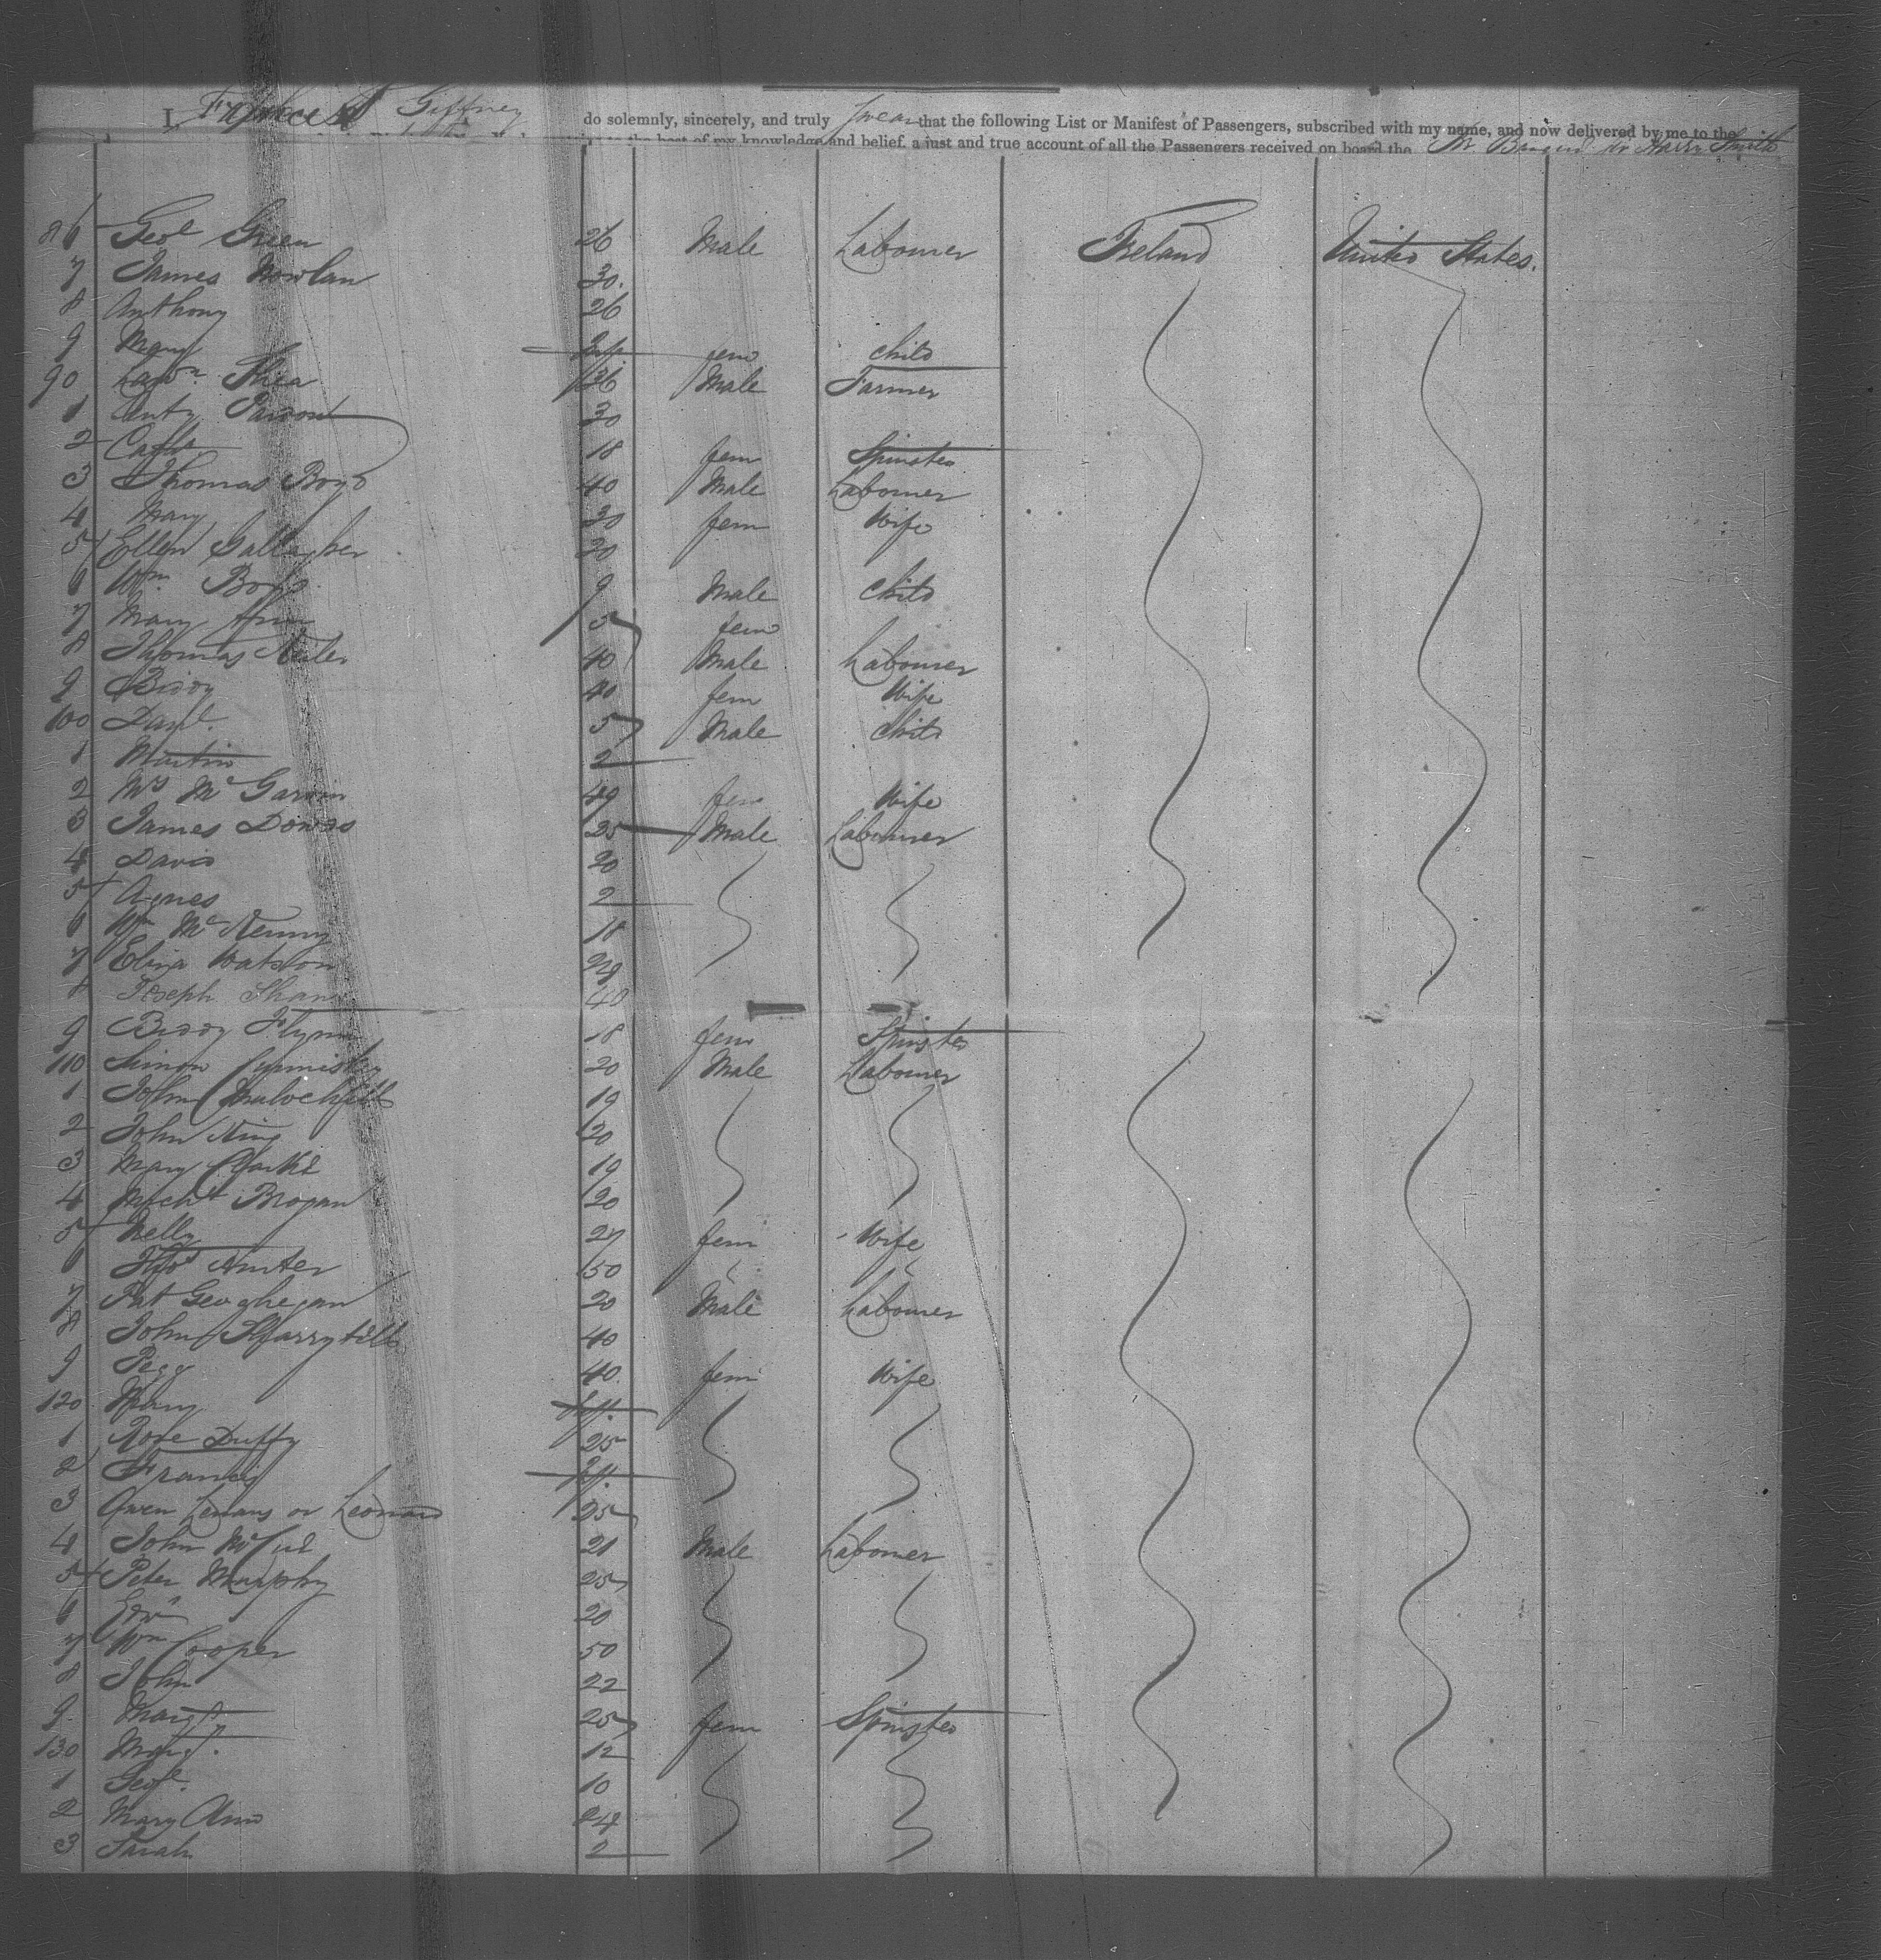 I, Francis Giffney do solemnly, sincerely, and truly Swear that the following List or Manifest of Passengers, subscribed with my name, and now delivered by me to the
to the best of my knowledge and belief, a just and true account of all the Passengers received on board the Br. Barque Sir Harry Smith
86 Geoe Green 26 Male Labourer Ireland United States.
7 James Nowlan 30.
8 Anthony 26
9 Mary Inf fem Child
90 Lawn. Shea 36 Male Farmer
1 Anty 30
2 Cath 18 fem Spinster
3 Thomas Boyd 40 Male Labourer
4 Mary 30 fem Wife
5 Ellen Gallagher 20
6 Wm. Boyd 9 Male Child
7 Mary Ann 5 fem
8 Thomas 40 Male Labourer
9 Biddy 40 fem Wife
100 Danl. 5 Male Child
1 Martin 2
2 Mrs Mc 49 fem Wife
3 James Dowds 25 Male Labourer
4 David 20
5 Agnes 2
6 Wm Mc 18
7 Eliza Watson
8 Joseph 40
9 Biddy Flynn 18 fem Spinster
110 Simon 20 Male Labourer
1 John 19
2 John King 20
3 Mary Clarke 19
4 Michl Brogan 20
5 Nelly 27 fem Wife
6 Hunter 50
7 Pat Geoghegan 20 Male Labourer
8 John 40
9 Pegg 40. fem Wife
120 Mary Inf.
1 Rose Duffy 25
2 Francis Inf.
3 Owen Lenans or Leonard 25
4 John McCue 21 Male Labourer
5 Peter Murphy 25
6 Edwd 20
7 Wm Cooper 50
8 John 22
9. Margt 25 fem Spinster
130 Margt. 12
1 Geoe. 10
2 Mary Ann 24
3 Sarah 2